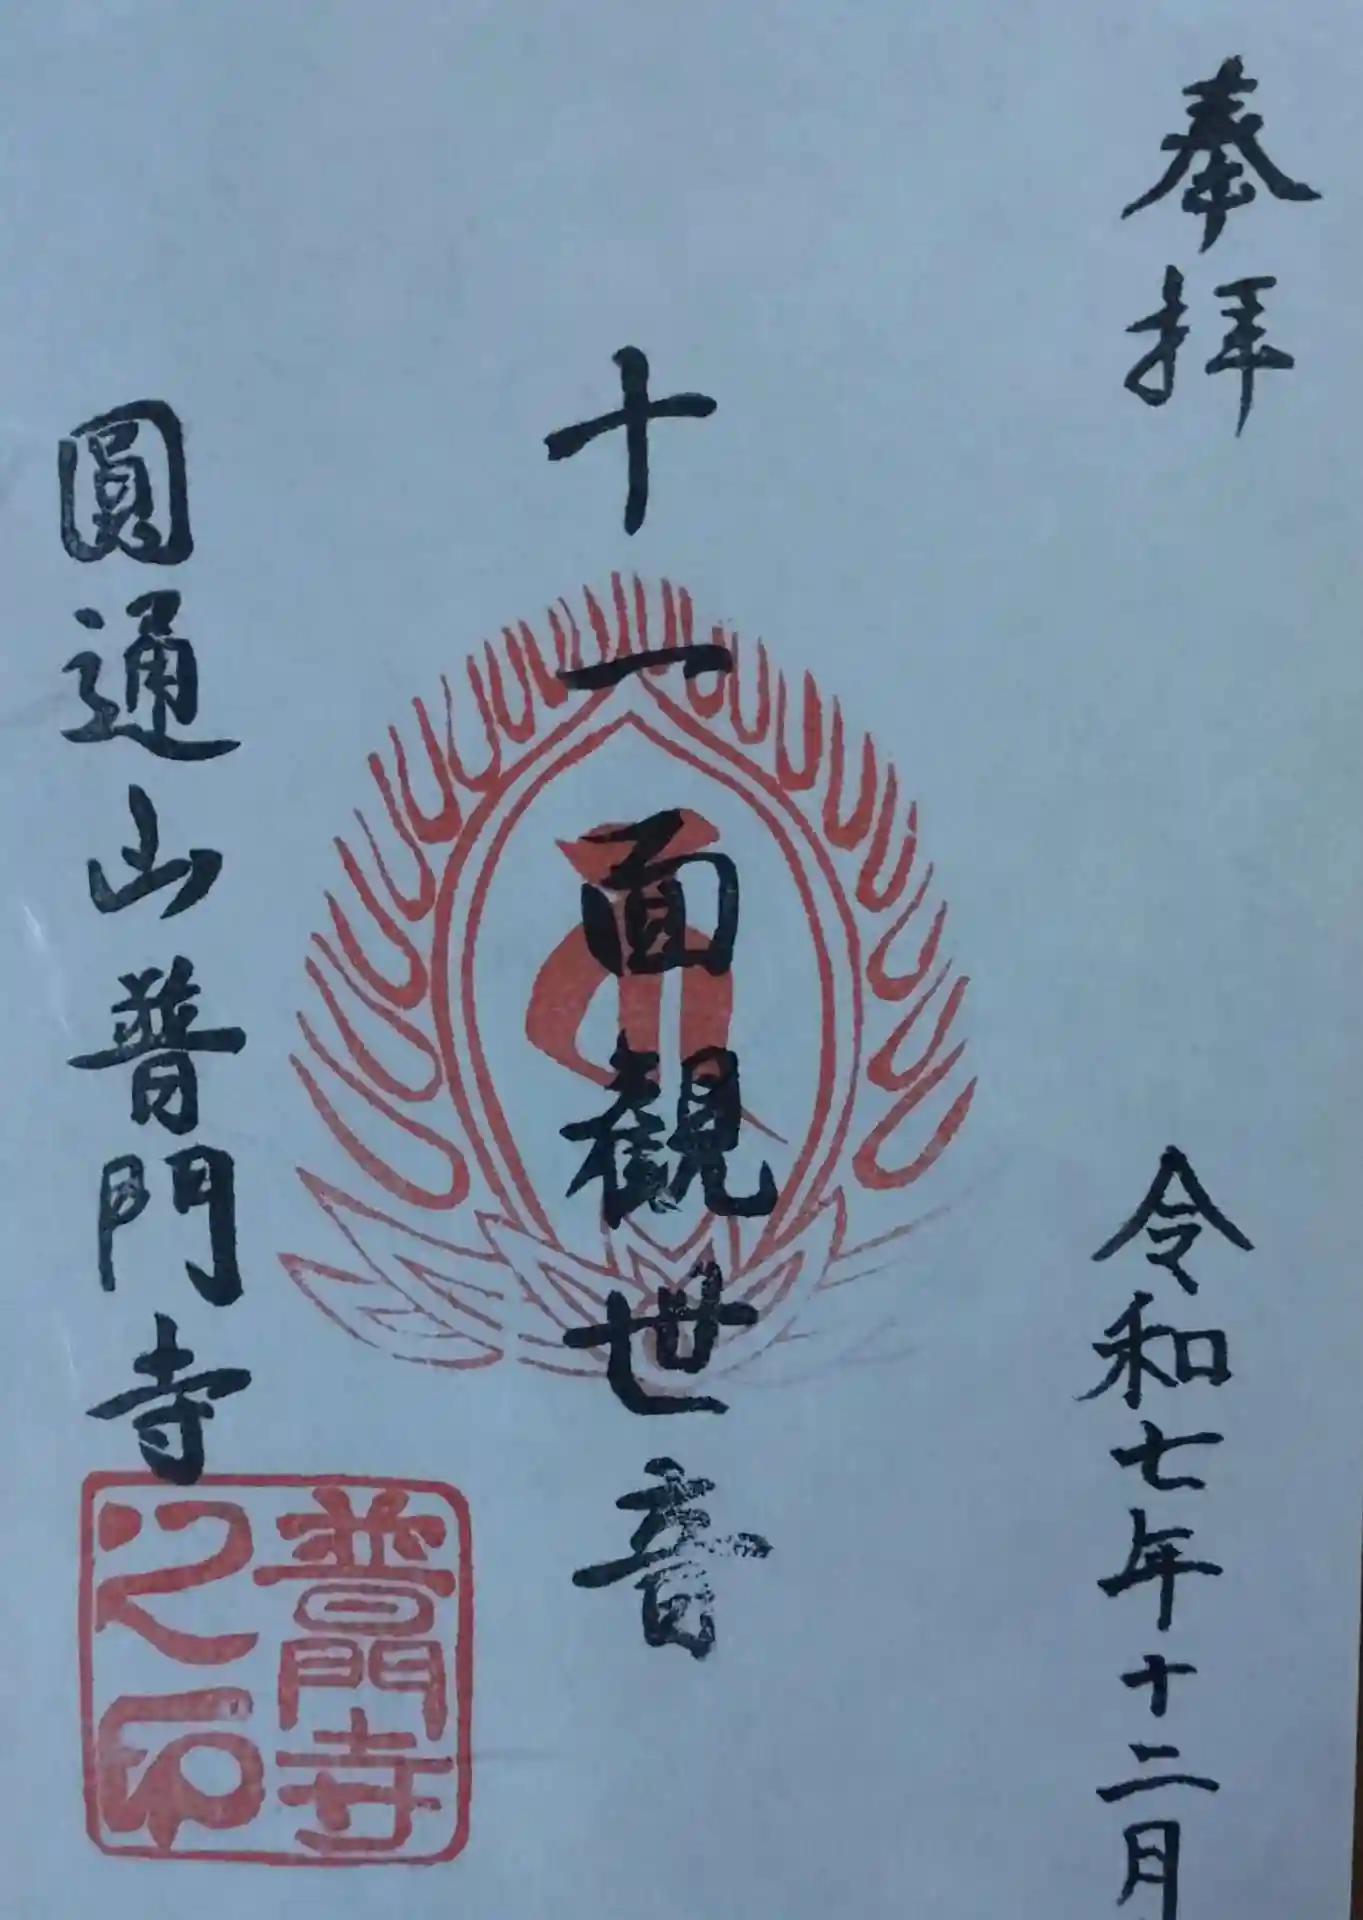 奉拝
令和七年十二月
十一面観世音
圓通山普門寺
普門寺
之印